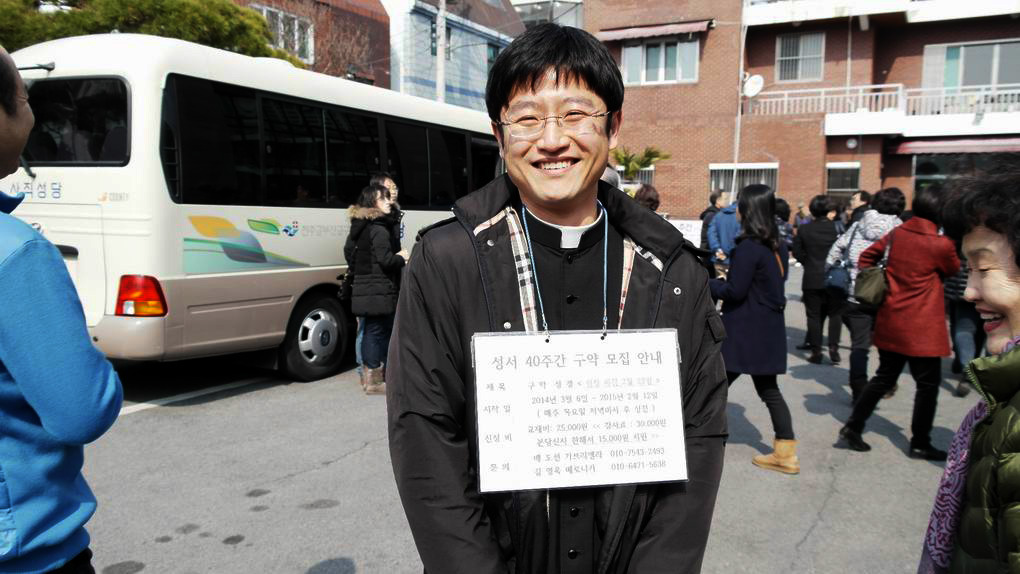 사직성당
COUNTY
천주교부산교구
성서 40주간 구약 모집 안내
제 목
구 약 성 경 <
시작 일
2014년 3월 6일 ~ 2015년 2월 12일
( 매주 목요일 저녁미사 후 성전 )
신청 비
교재비: 25,000원 << 강사료 : 30,000원
본당신자 한해서 15,000원 지원 >>
문 의
배 도선 가브리엘라 010-7543-2493
김 영옥 베로니카 010-6471-5638